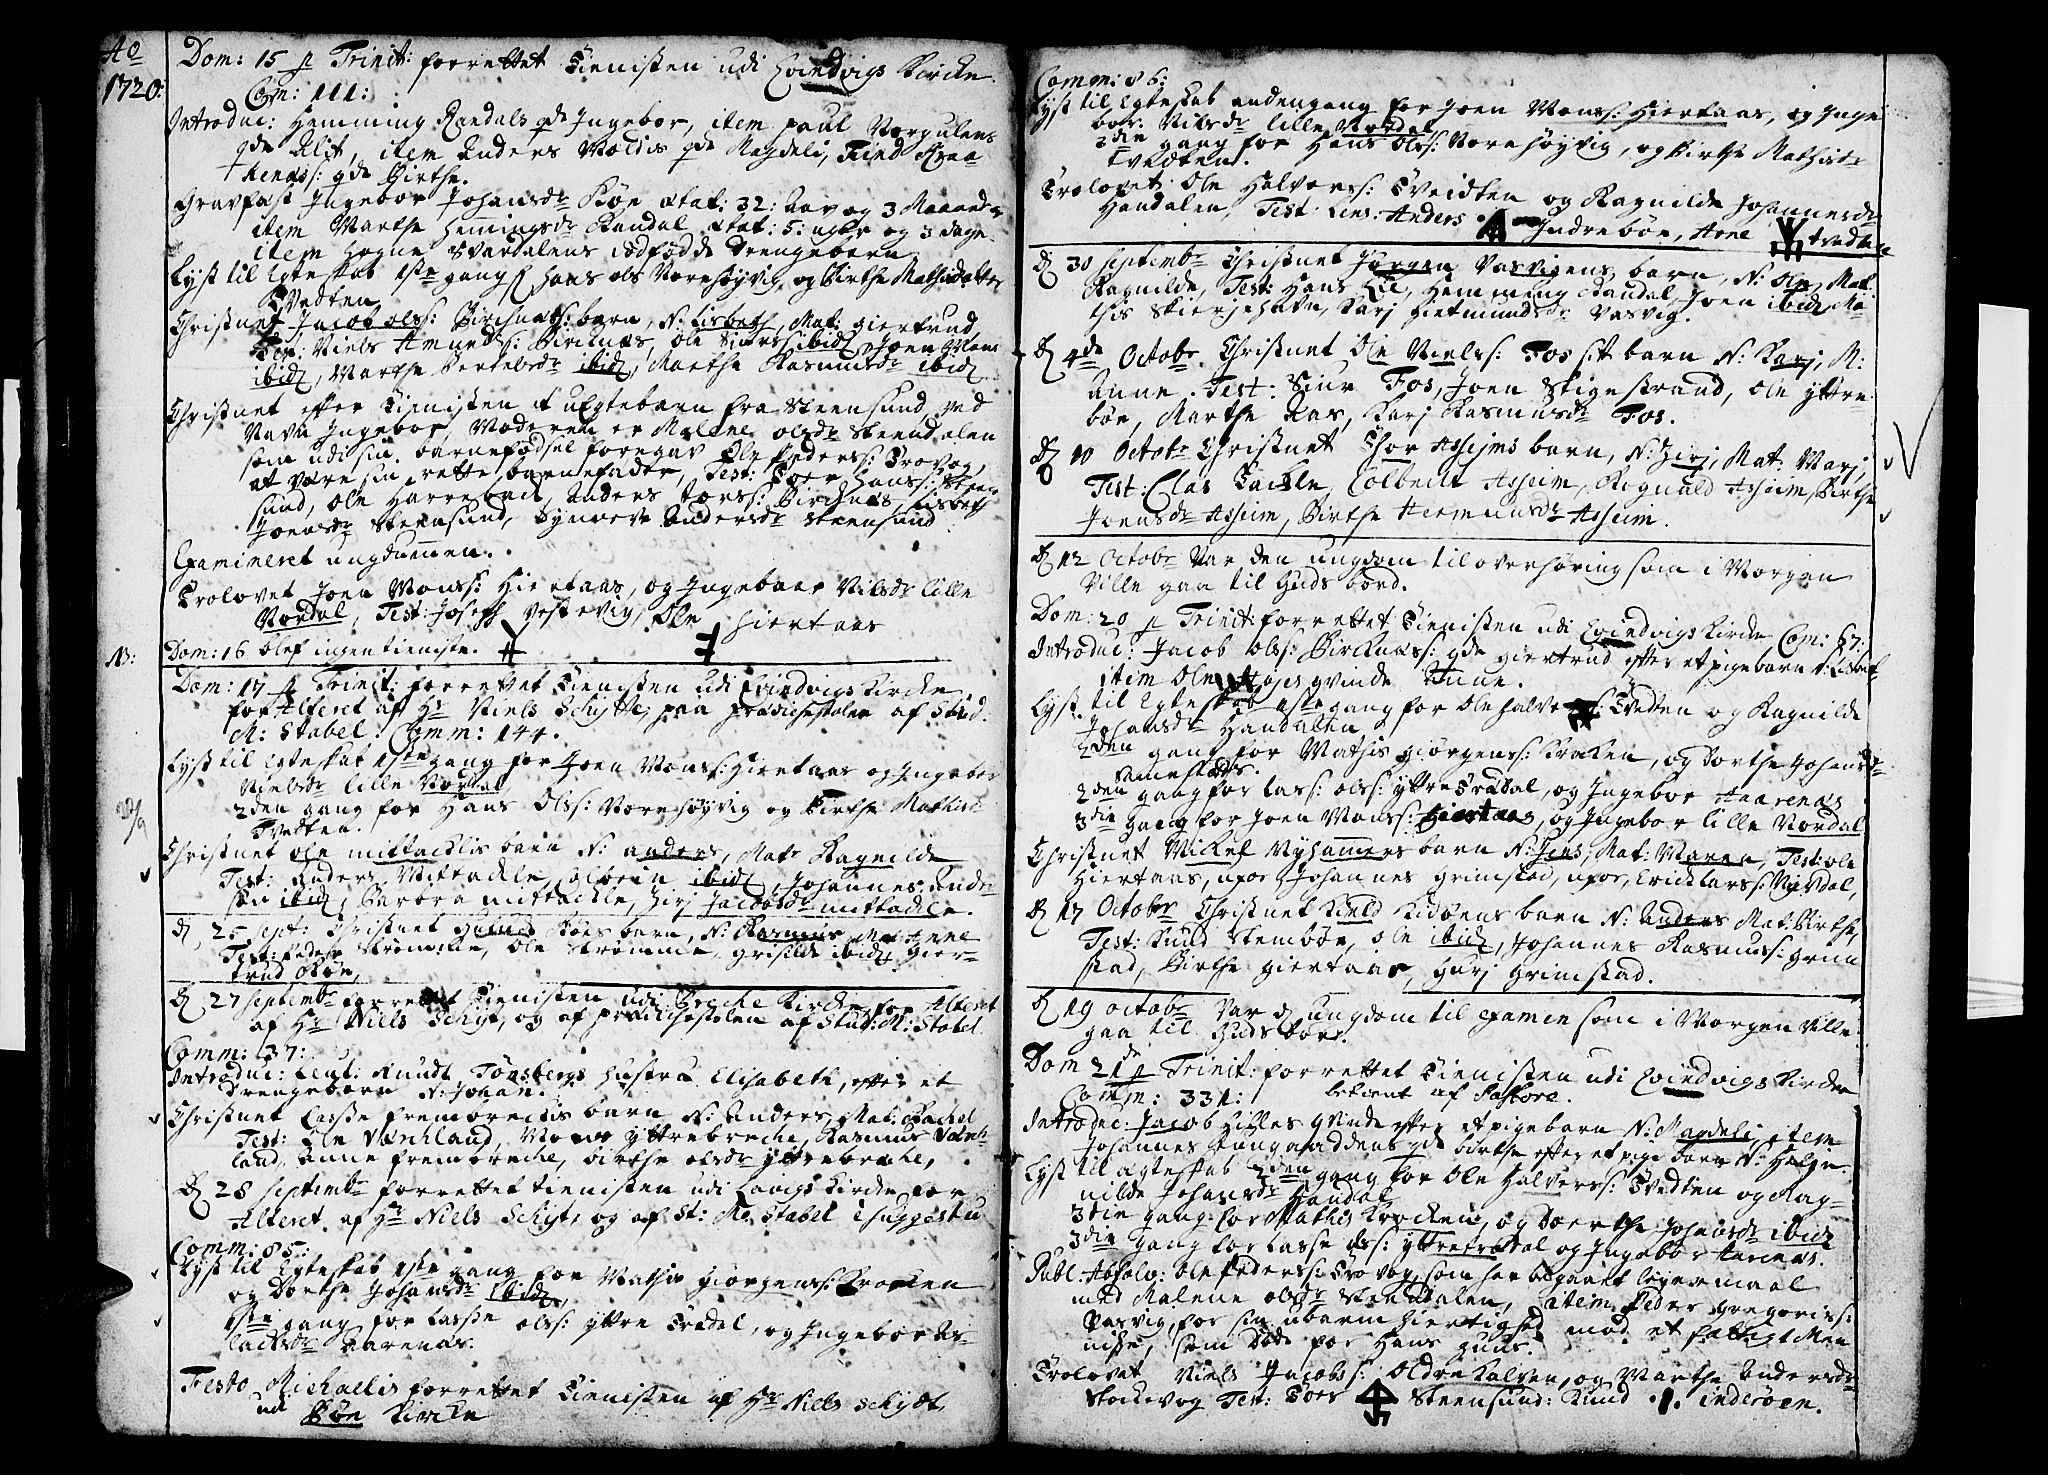 Ao
1720:
Dom: 15 p Trinit: forrettet Tienisten udi Evindvigs Kircke
Com: 111:
Introduc: Hemming Randals qde Ingebor, item paul Norgulens
qde Alit, item Anders Woldis qde Magdeli, Trind
qde Birthe.
Gravfæst Ingebor Johansdr Bøe ætat: 32: Aar og 3 Maaneder
item Marthe Hemingsdr Randal ætat: 5: uger og 3 dage
item Hogne Svardalens dødfødde drengebarn
Lyst til Egteskab 1ste gang f Hans ols Norehøyvig og Birthe Mathisdatter
Tvedten
Christnet Jacob olss: Birchnæs: barn, N: Lisbeth, Mat: Giertrud
Test: Niels Amunds: Bircknæs, Ole ibid, Joen
ibid, Marthe Bertelsdr ibid, Marthe Rasmusdr ibid
Christnet efter Tienisten et uEgtebarn fra Steensund ved
Navn Ingebor Moderen er Malene olsdr Steendalen
som udi sin barnefødsel foregav Ole Pederss: Trovog,
at være sin rette barnefader, Test: Toer Hanss: Steen
sund, Ole Harrebach, Anders Birchnæs, Lisbeth
Joensdr Steensund, Synneve Andersdr Steensund
Examineret ungdommen.
Trolovet Joen Monss: Hiertaas, og Ingebaar Nilsdr lille
Nordal, Test: Joseph Ole Hiertaas
NB: Dom: 16 blef ingen tieniste.
Dom: 17 p Trinit: forrettet Tienisten udi Evindvigs Kircke
for Alteret af Hr Niels Schytte, paa prædichestolen af Stud.
M: Stabel. Comm: 144.
Lyst til Egteskab 1ste gang for Joen Monss: Hiertaas og Ingebor
Nielsdr lille Nordal
2den gang for Hans Olss: Norehøyvig og Birthe Mathisd
Tvedten.
Christnet ole mittachlis barn N: anders, Mat: Ragnilde
Test: Anders Mittachle, ibid, Johannes
ibid, Barbra mittachle, Jacobsdr mittachle.
D 25 Sept: Christnet Bøes barn, N: Rasmus, Mat: Anne
Test: Peder Strømme, Ole Strømme, Grisilde ibid, Gier-
trud Bøe,
D 27 Septembr forrettet Tienisten udi Breche Kircke for Alteret
af Hr Niels Schyt, og af prædichestolen af Stud: M: Stabel
Comm: 37:
Introduc: Leut: Knudt Tønsbergs Hustru Elisabeth, efter et
Drengebarn N: Johan.
Christnet Lasse fremerechis barn N: Anders, Mat: Rachel
Test: Ole Værhland, Mons yttrebreche, Rasmus Værh-
land, Anne frembreche, birthe olsdr yttrebreche,
D 28 Septembr forrettet tienisten udi Laavigs Kircke for
Alteret af Hr Niels Schyt, og af St: M: Stabel i suggestu
Comm: 85:
Lyst til Egteskab 1ste gang for Mathis Giørgenss: Kracken
og Dorthe Johansdr Ibid,
1ste gang for Lasse olss: yttre Tredal, og Ingebor As-
lachsdr Aarenæs.
Festo Michaelis forrettet Tienisten af Hr Niels Schydt
udi Bøe Kircke
Comm: 86:
Lyst til Egteskab andengang for Joen Monss: Hiertaas, og Inge
bor: Nilsdr lille Nordal
2den gang for Hans Olss: Norehøyvig, og Birthe Mathisdr
Tvedten.
Trolovet Ole Halvorss: Tveidten og Ragnilde Johannesdr
Handalen, Test: Lens: Anders Indrebøe, Arne Tvedten
D 30 Septembr Christnet Jørgen Vasvigens barn, N: Ole, Mat:
Ragnilde, Test: Hans Lie, Hemming Randal, Joen ibid, Ma-
this Skierjehavn, Karj Gietmundsdr Vasvig.
D 4de Octobr. Christnet Ole Nielss: Fos sit barn N: Karj, M:
Anne. Test: Siur Fos, Joen Stigestrand, Ole yttre
bøe, Marthe Aas, Karj Rasmusdr Fos.
D 10 Octobr Christnet Thor Asheims barn, N: Zirj, Mat: Marj,
Test: Clas Tackle, Colbeen Asheim, Regnald Asheim, Birthe
Joensdr Asheim, Birthe Asheim.
D 12 Octobr Var den ungdom til overhøring som i Morgen
Ville gaa til Guds bord.
Dom: 20 p Trinit: forrettet Tienisten udi Evindvigs Kirche Com: 67:
Introduc: Jacob olss: Bircknæss: qde Giertrud efter et pigebarn N: Lisbet
item Ole qvinde Anne.
Lyst til Egteskab 1ste gang for Ole halvorss: Tvedten og Ragnilde
Johansdr Handalen
2den gang for Mathis Giørgenss: Kracken, og Dorthe Johansdr
2den gang for Lass: olss: yttre Tredal, og Ingebor Aarenæs
3die gang for Joen Monss: Hiertaas, og Ingebor lille Nordal
Christnet Mickel Nyhamers barn N: Jens, Mat: Maren, Test: ole
Hiertaas, Johannes grimstad, Erick Larss: Nordal,
D 17 Octobr Christnet Kield Kidøens barn N: Anders Mat: Birthe,
Test: Knud Rembøe, ole ibid, Johannes Rasmuss: Grim
stad, Birthe Giertaas, Hurj Grimstad.
D 19 octobr Var d ungdom til Examen som i Morgen Ville
gaa til Guds bord.
Dom 21de p Trinit: forrettet Tienisten udi Evindvigs Kircke
Comm: 331: betient af Pastore.
Introduc: Jacob Hilles Qvinde efter et pigebarn N: Magdeli, item
Johannes qde birthe efter et pige barn N:
Lyst til Egteskab 2den gang for Ole Halvorss: Tvedten og Rag-
nilde Johansdr Handal
3die gang for Mathis Kracken, og Doorthe Johansdr ibid
3die gang for Lasse Olss: yttretredal og Ingebor Aarenæs.
Publ: Absolv: Ole Pederss: Trovog, som har begaaet leyermaal
med Malene olsdr Steendalen, item Peder Gregoriss:
Vasvig, for sin ubarmhiertighed mod et fattigt Men
niske, som døde for Hans Huus.
Trolovet Niels Jacobss: Oldre Kalven, og Marthe Andersdr
Stockevog Test: Toer Steensund: Knud inderøen.